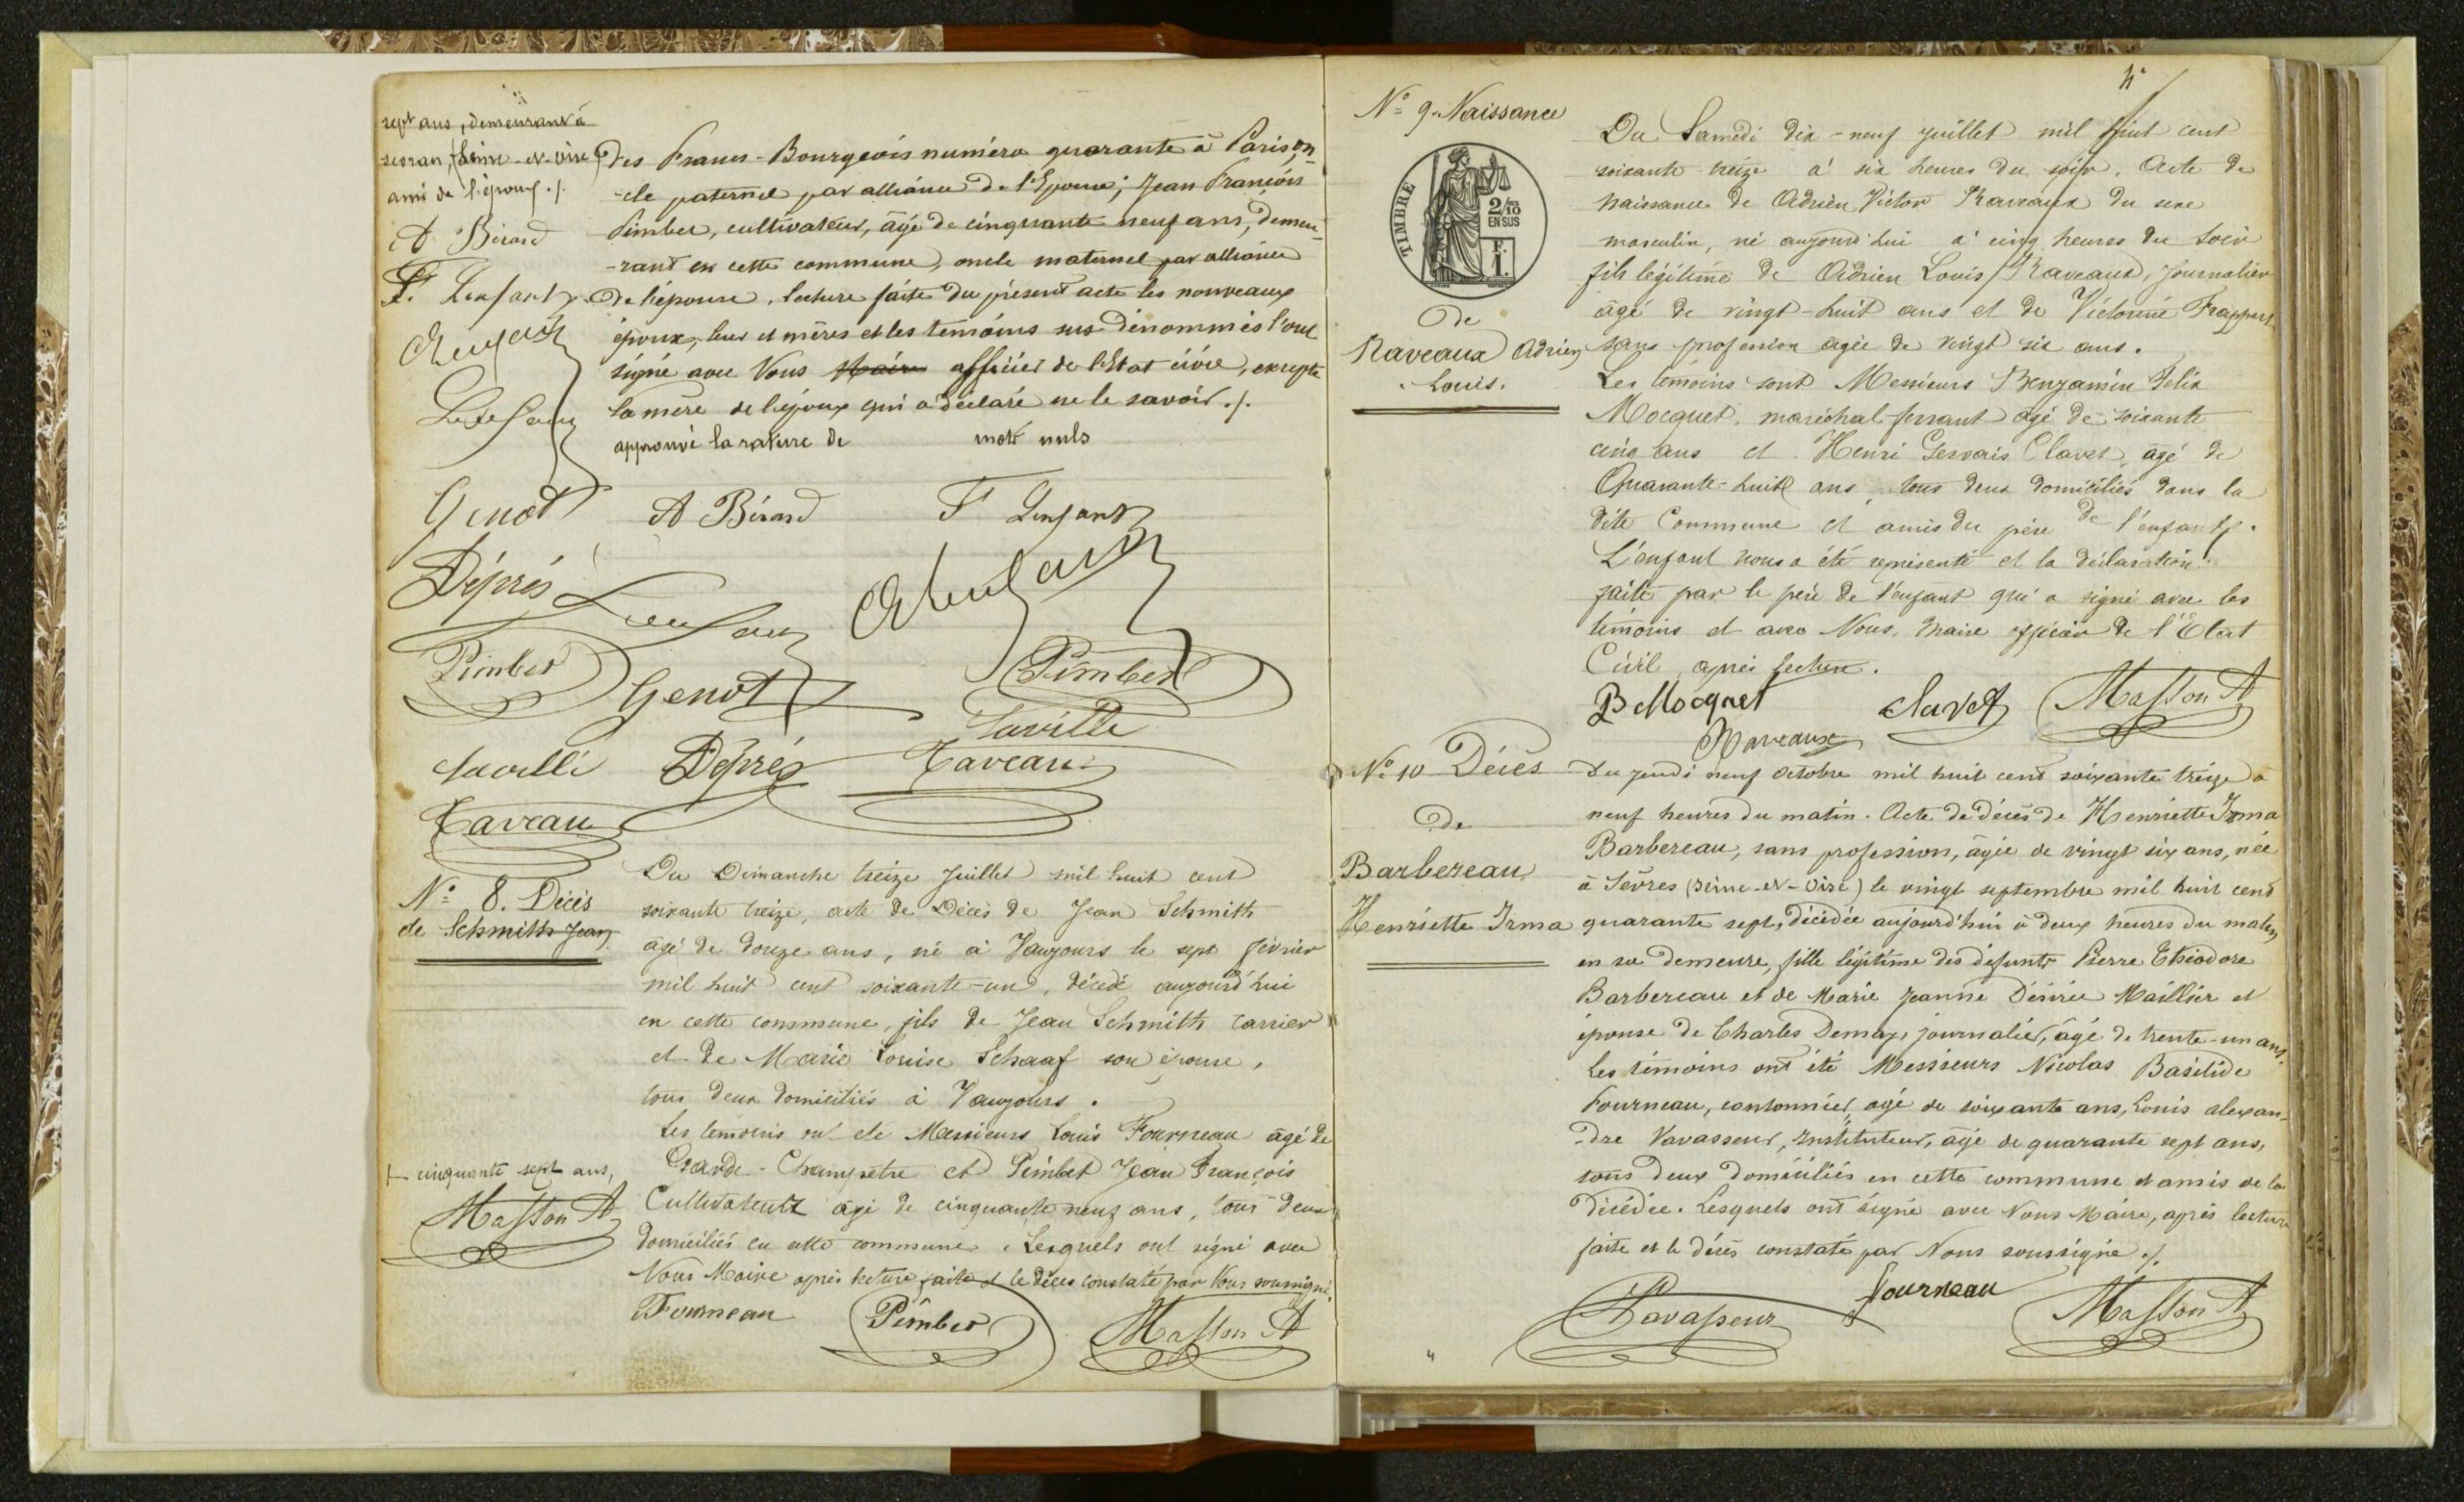 sept ans, demeurant à
sevran, (Seine-et-oise)
ami de l'époux ./.
A Bérard
F. Lenfant
Genot
Déprés
Pimbet
Laville
Taveau
des Francs-Bourgeois numéro quarante à Paris, on
-cle paternel par alliance de l'Epouse; Jean François
Pimbet, cultivateur, âgé de cinquante neuf ans, demeu-
-rant en cette commune, oncle maternel par alliance
de l'épouse. lecture faite du présent acte les nouveaux
époux, leur et mères et les temoins sus-dénommés l'ont
signé avec Nous Maire officier de l'Etat civil, excepté
la mère de l'époux qui a déclaré ne le savoir ./.
approuvé la rature de mots nuls
A Bérard F Lenfant
Genot Pimbet
Laville
Déprés Taveau
N° 8. Décès
de Schmith Jean
Du Dimanche treize Juillet mil huit cent
soixante treize, acte de Décès de Jean Schmith
âgé de douze ans, né à Vaujours le sept février
mil huit cent soixante-un, décédé aujourd'hui
en cette commune, fils de Jean Schmith carrier
et de Marie Louise Schaaf son épouse,
tous deux domiciliés à Vaujours.
Les témoins ont été Messieurs Louis Fourneau âgé de
Garde-Champêtre et Pimbet Jean François
Cultivateur âgé de cinquante neuf ans, tous deux
domiciliés en cette commune. Lesquels ont signé avec
Nous Maire après lecture faite et le décès constaté par Nous soussigné.
cinquante sept ans,
Masson A
Fourneau Pimbet Masson A
4e
N° 9. Naissance
TIMBRE
2/10
EN SUS
F.
1.
de
Raveaux Adrien
Louis.
Du Samedi dix-neuf juillet mil huit cent
soixante treize à six heures du soir. Acte de
naissance de Adrien Victor Raveaux du sexe
masculin, né aujourd'hui à cinq heures du soir
fils légitime de Adrien Louis Raveaux, journalier
âgé de vingt-huit ans et de Victorine Frappart
sans profession agée de vingt six ans.
Les témoins sont Messieurs Benjamin Felix
Mocquet, maréchal ferrant âgé de soixante
cinq ans et Henri Gervais Clavet, âgé de
Quarante-huit ans, tous deux domiciliés dans la
dite Commune et amis du père de l'enfant.
L'enfant nous a été représenté et la déclaration
faite par le père de l'enfant qui a signé avec les
témoins et avec Nous, Maire officier de l'Etat
Civil, après lecture.
B Mocquet Clavet Masson A
Raveaux
N° 10 Décès
de
Barbereau
Henriette Irma
Du jeudi neuf Octobre mil huit cent soixante treize à
neuf heures du matin. Acte de décès de Henriette Irma
Barbereau, sans profession, âgée de vingt six ans, née
à Sèvres (Seine-et-Oise) le vingt septembre mil huit cent
quarante sept, décédée aujourd'hui à deux heures du matin
en sa demeure, fille légitime des défunts Pierre Théodore
Barbereau et de Marie Jeanne Désirée Maillier et
épouse de Charles Demay, journalier, âgé de trente-un ans.
Les témoins ont été Messieurs Nicolas Basilide
Fourneau, cantonnier, agé de soixante ans, Louis alexan-
-dre Vavasseur, Instituteur, âgé de quarante sept ans,
tous deux domiciliés en cette commune et amis de la
décédée. Lesquels ont signé avec Nous Maire, après lecture
faite et le décès constaté par Nous soussigné ./.
Vavasseur Fourneau Masson A